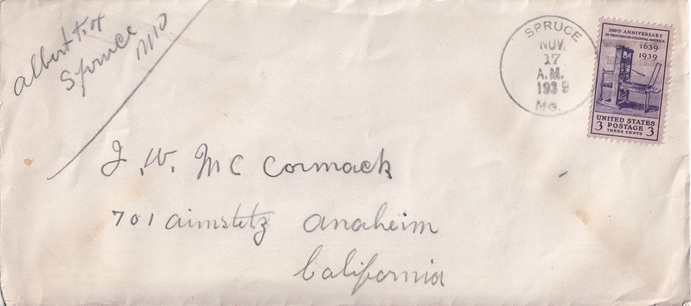 Albert Fox
Spruce
MO
SPRUCE
NOV.
17
A.M.
1939
MO.
300TH ANNIVERSARY
OF PRINTING IN COLONIAL AMERICA
1639
1939
UNITED STATES
3 POSTAGE 3
THREE CENTS
J. W. MC Cormack
701 Anaheim
California